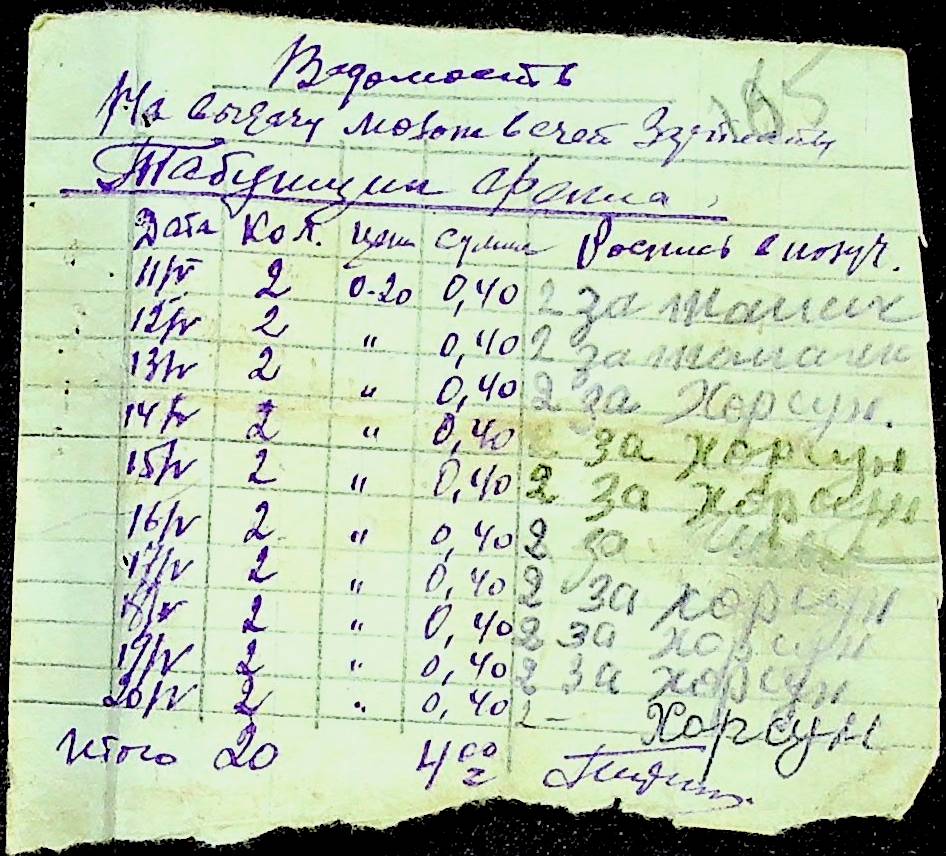 Ведомость
На выдачу молок в счет Зарплаты
Табунщики фроила
165
Дата Кол. цена сумма Роспись в получ.
11/V 2 0-20 0,40 2 за
12/V 2 " 0,40 2 за
13/V 2 " 0,40 2 за Хорсун.
14/V 2 " 0,40 2 за хорсун
15/V 2 " 0,40 2 за хорсун
16/V 2 " 0,40 2 за
17/V 2 " 0,40 2 за хорсун
18/V 2 " 0,40 2 за хорсун
19/V 2 " 0,40 2 за хорсун
20/V 2 " 0,40 2 - Хорсун
Итого 20 4 00